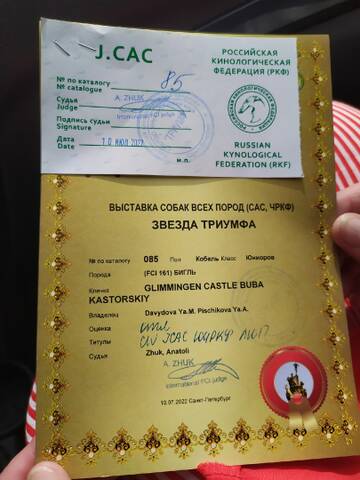 J.CAC
РОССИЙСКАЯ
КИНОЛОГИЧЕСКАЯ
ФЕДЕРАЦИЯ (РКФ)
№ по каталогу
№ catalogue
85
Судья
Judge
A. ZHUK
International FCI judge
Подпись судьи
Signature
Дата
Date
10 ИЮЛ 2022
М.П.
RUSSIAN
KYNOLOGICAL
FEDERATION (RKF)
ВЫСТАВКА СОБАК ВСЕХ ПОРОД (САС, ЧРКФ)
ЗВЕЗДА ТРИУМФА
№ по каталогу 085 Пол Кобель Класс Юниоров
Порода (FCI 161) БИГЛЬ
Кличка GLIMMINGEN CASTLE BUBA
KASTORSKIY
Владелец Davydova Ya.M. Pischikova Ya.A.
Оценка
Титулы CW JCAC ЮЧРКФ ЛЮП
Судья Zhuk, Anatoli
A. ZHUK
International FCI judge
10.07.2022 Санкт-Петербург